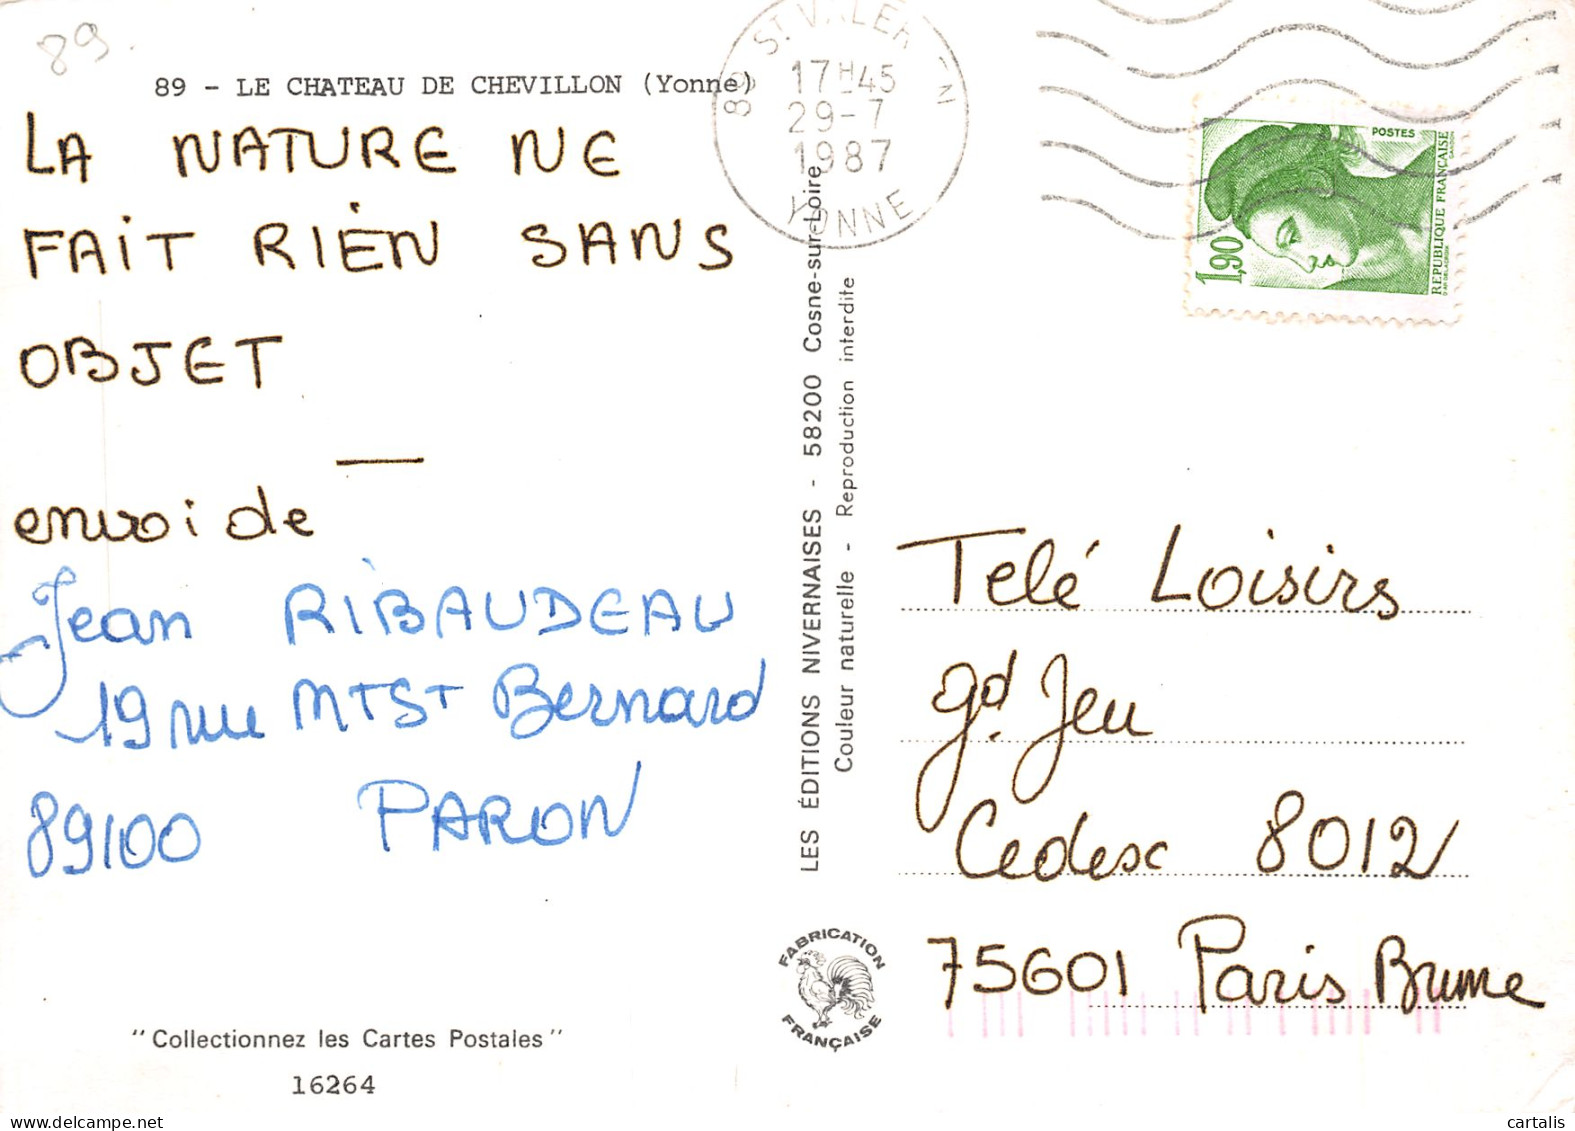 89
89 - LE CHATEAU DE CHEVILLON (Yonne)
LA NATURE NE
FAIT RIEN SANS
OBJET
envoi de
Jean RIBAUDEAU
19 rue MTST Bernard
89100 PARON
"Collectionnez les Cartes Postales"
16264
LES ÉDITIONS NIVERNAISES - 58200 Cosne-sur-Loire
Couleur naturelle - Reproduction interdite
FABRICATION
FRANÇAISE
89 ST VALER
17H45
29-7
1987
YONNE
POSTES
1,90
REPUBLIQUE FRANÇAISE
Telé Loisirs
gd. Jeu
Cedex 8012
75601 Paris Brune
cartalis